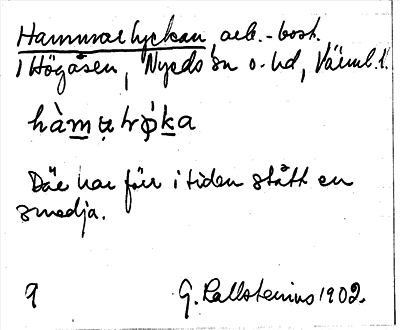 Hammarlyckan, arb.-bost.
i Högåsen, Nyeds sn o. hd, Värml. l.
hàmarlyka
Där har förr i tiden stått en
smedja.
9 G. Kallstenius 1902.